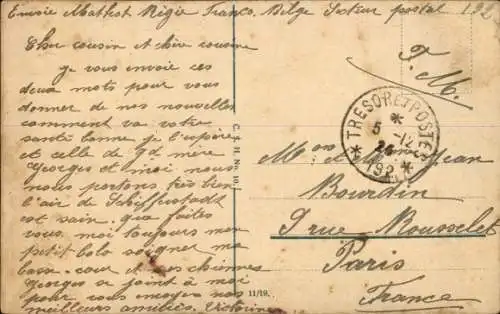 Envoie Mathot Régie Franco Belge Secteur postal 192
F. M.
Cher cousin et chère cousine
je vous envoie ces
deux mots pour vous
donner de nos nouvelles
comment va votre
santé bonne je l'espère
et celle de gd mère
Georges et moi nous
nous portons très bien
l'air de Schifferstadt
est sain, que faites
vous moi toujours mon
petit bolo soigner ma
basse-cour et mes chiennes
Georges se joint à moi
pour vous envoyer nos
meilleurs amitiés. Victorine
C. S. H. No
11/19.
TRESOR ET POSTES
5 -12
192
Mme Jean
Bourdin
9 rue Rousselet
Paris
France